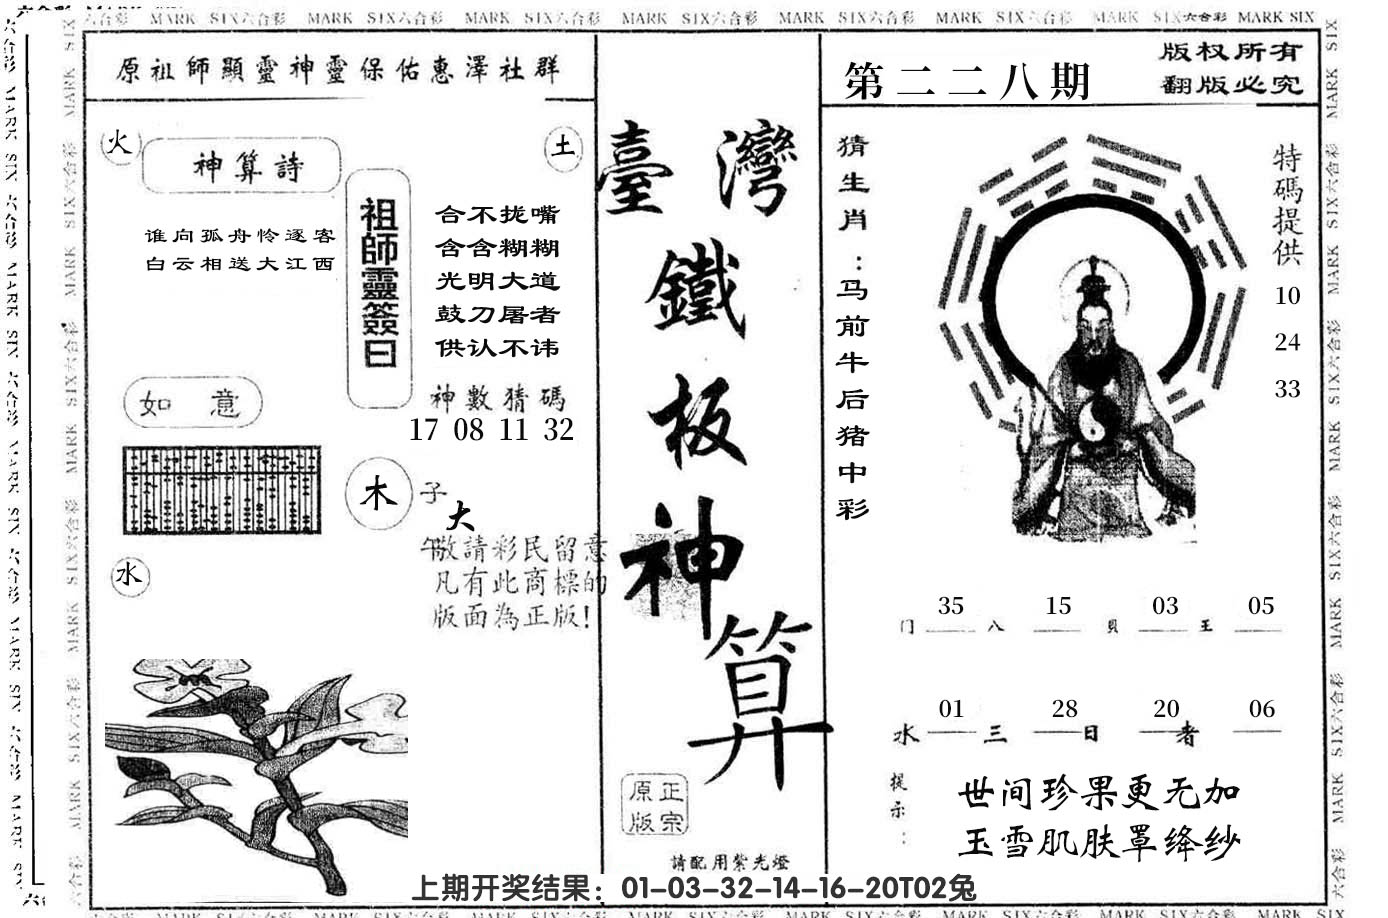 MARK SIX六合彩 MARK SIX六合彩 MARK SIX六合彩 MARK SIX六合彩 MARK SIX六合彩 MARK SIX六合彩 MARK SIX六合彩 MARK SIX
原祖師顯靈神靈保佑惠澤社群
火
神算詩
谁向孤舟怜逐客
白云相送大江西
土
祖師靈簽曰
合不拢嘴
含含糊糊
光明大道
鼓刀屠者
供认不讳
神數猜碼
17 08 11 32
如意
木
子
大
午
敬請彩民留意
凡有此商標的
版面為正版!
水
臺灣
鐵
板
神
算
正宗
原版
請配用紫光燈
第二二八期
版权所有
翻版必究
猜生肖：马前牛后猪中彩
特碼提供
10
24
33
35 15 03 05
门 八 貝 王
01 28 20 06
水 三 日 者
提示：
世间珍果更无加
玉雪肌肤罩绛纱
上期开奖结果：01-03-32-14-16-20T02兔